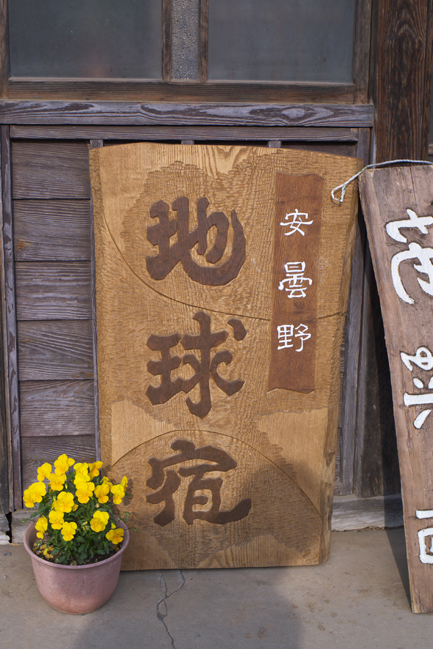 安曇野
地球宿